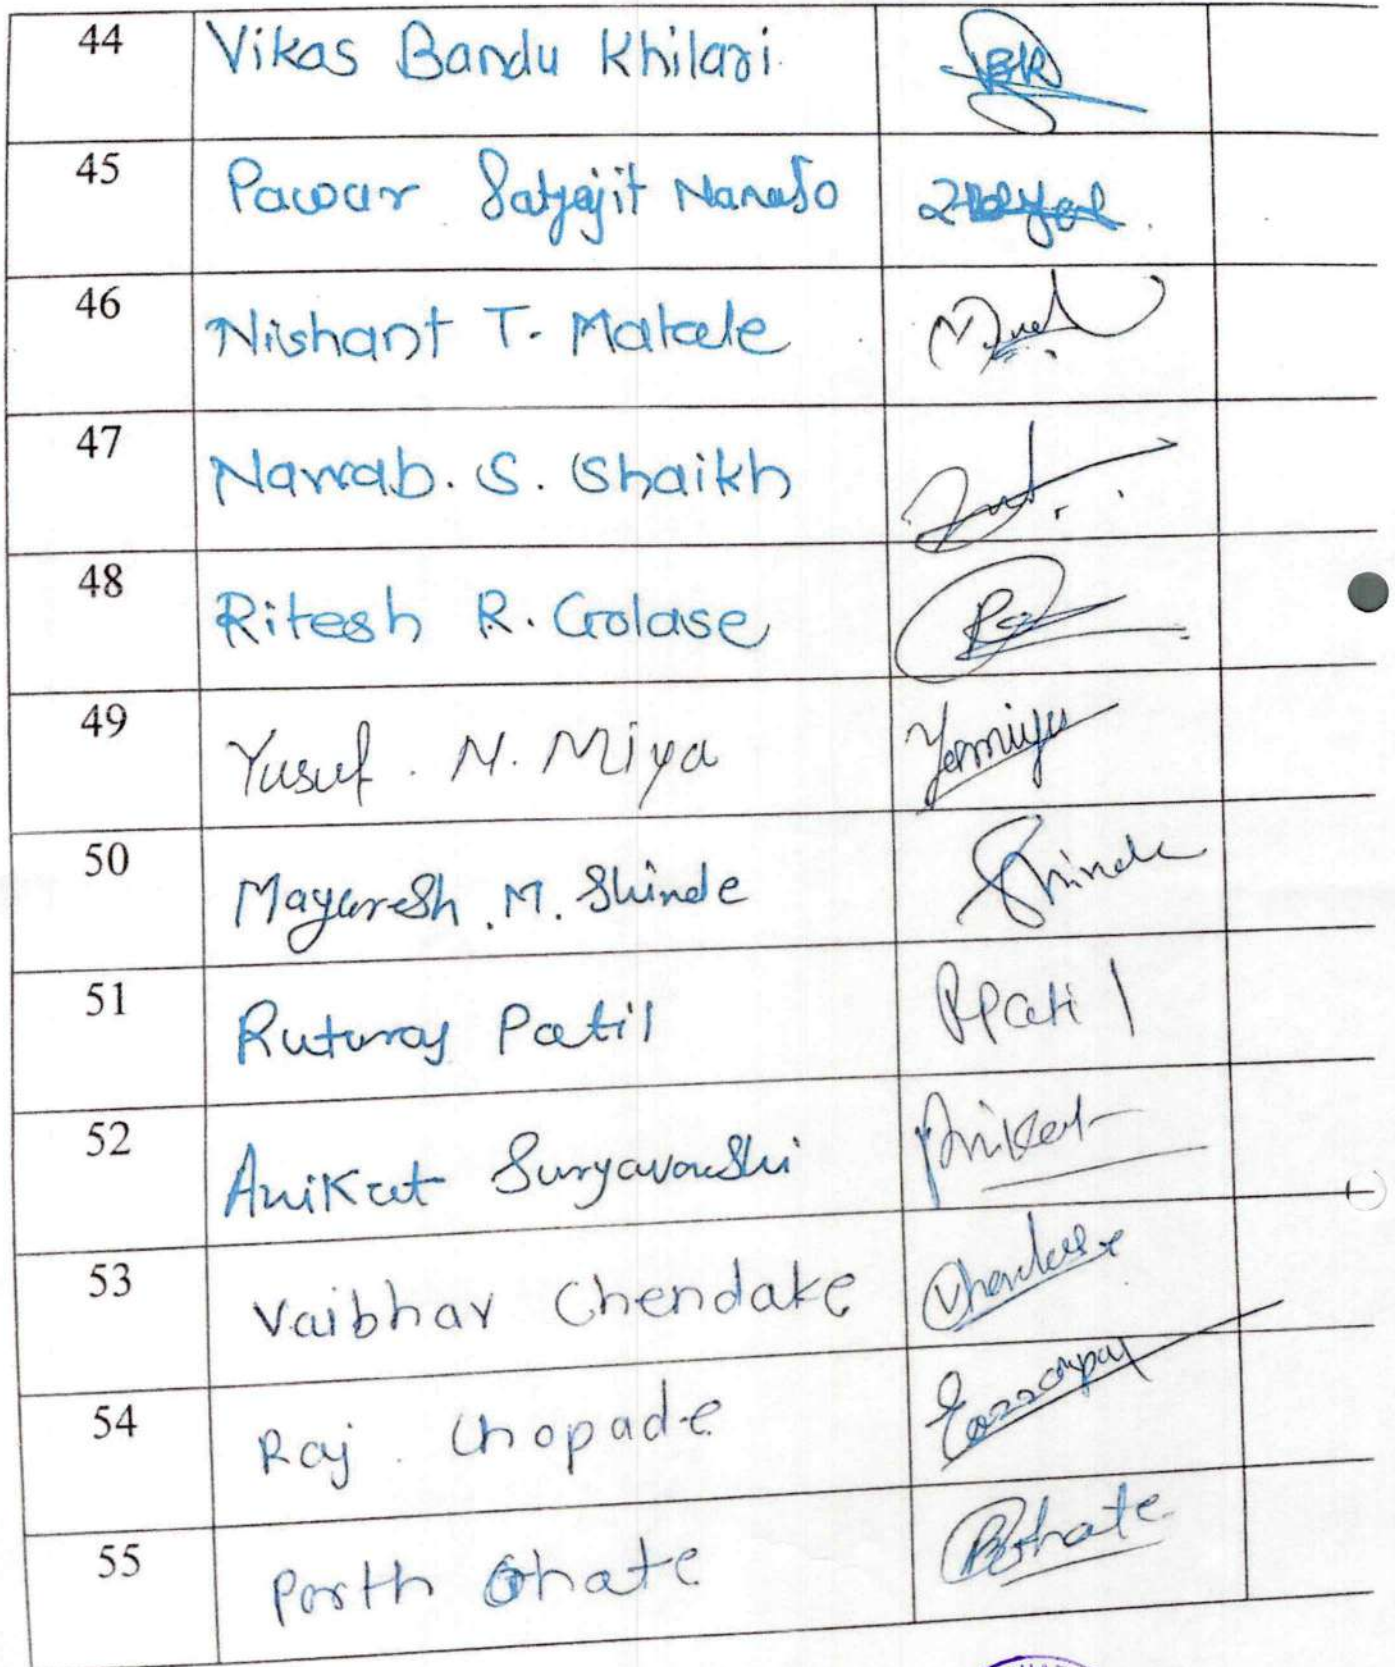 44 Vikas Bandu Khilari
45 Pawar Satyajit Nanaso
46 Nishant T. Makale
47 Nawab. S. Shaikh
48 Ritesh R. Golase
49 Yusuf . N. Miya Yemiya
50 Mayuresh . M. Shinde Shinde
51 Ruturaj Patil RPatil
52 Aniket Suryavanshi Aniket
53 Vaibhav Chendake
54 Raj . Chopade
55 Parth Ghate PGhate